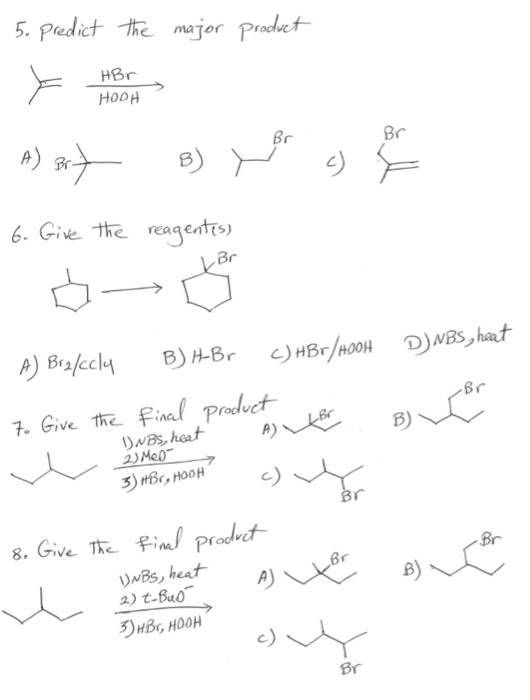 5. Predict the major product
HBr
HOOH
A) Br
B) Br
C) Br
6. Give the reagent(s)
Br
A) Br2/ccl4
B) H-Br
C) HBr/HOOH
D) NBS, heat
7. Give the final product
1) NBS, heat
2) MeO-
3) HBr, HOOH
A) Br
B) Br
C) Br
8. Give the final product
1) NBS, heat
2) t-BuO-
3) HBr, HOOH
A) Br
B) Br
C) Br